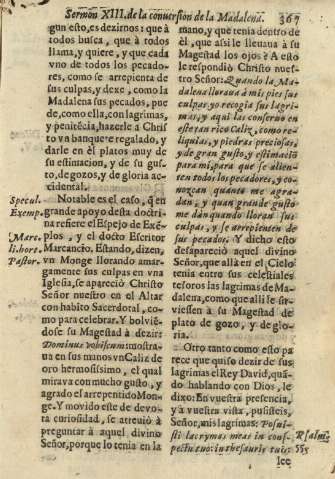 Sermon XIII. de la conuersion de la Madalena. 367
gun esto, es dezirnos: que à
todos busca, que à todos
llama, y quiere, y que cada
vno de todos los pecado-
res, como se arrepienta de
sus culpas, y dexe, como la
Madalena sus pecados, pue
de, como ella, con lagrimas,
y penitẽcia, hazerle a Chris
to vn banquete regalado, y
darle en èl platos muy de
su estimacion, y de su gus-
to, de gozos, y de gloria ac-
cidental.
Specul.
Exemp.
Marc.
li. hort.
Pastor.
Notable es el caso, q̃ en
grande apoyo desta doctri-
na refiere el Espejo de Exẽ-
plos, y el docto Escritor
Marcancio. Estando, dizen,
vn Monge llorando amar-
gamente sus culpas en vna
Iglesia, se apareciò Christo
Señor nuestro en el Altar
con habito Sacerdotal, co-
mo para celebrar. Y bolviẽ-
dose su Magestad à dezir:
Dominus vobiscum mostra-
ua en sus manos vn Caliz de
oro hermosissimo, el qual
mirava con mucho gusto, y
agrado el arrepentido Mon-
ge. Y movido este de devo-
ta curiosidad, se atreuiò à
preguntar à aquel divino
Señor, porque lo tenia en la
mano, y que tenia dentro de
èl, que assi le lleuaua à su
Magestad los ojos? A esto
le respondiò Christo nues-
tro Señor: Quando la Ma-
dalena lloraua à mis pies sus
culpas, yo recogia sus lagri-
mas, y aqui las conseruo en
este tan rico Caliz, como re-
liquias, y piedras preciosas,
y de gran gusto, y estimaciõ
para mi, para que se alien-
ten todos los pecadores, y co-
nozcan quanto me agra-
dan, y quan grande gusto
me dàn quando lloran sus
culpas, y se arrepienten de
sus pecados. Y dicho esto
desapareciò aquel divino
Señor, que allà en el Cielo
tenia entre sus celestiales
tesoros las lagrimas de Ma-
dalena, como que alli le sir-
viessen à su Magestad de
plato de gozo, y de glo-
ria.
Otro tanto como esto pa
rece que quiso dezir de sus
lagrimas el Rey David, quã-
do hablando con Dios, le
dixo: En vuestra presencia,
y à vuestra vista, pusisteis,
Señor, mis lagrimas: Posui-
sti lacrymas meas in cons-
pectu tuo: in thesauris tuis:
Psalm.
55.
lee